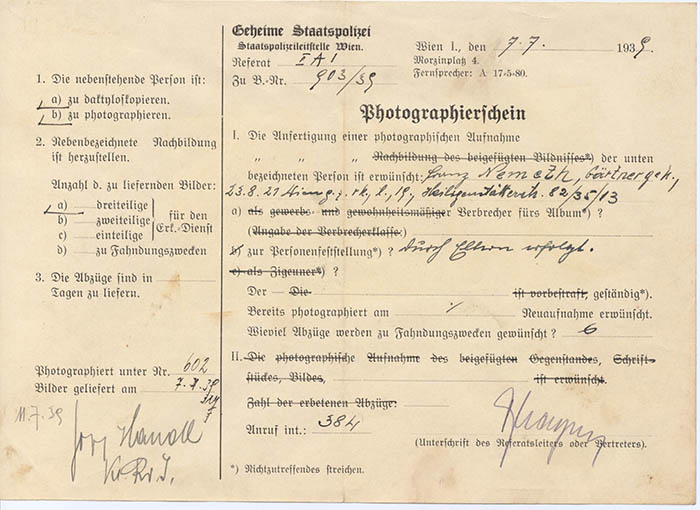 1. Die nebenstehende Person ist:
a) zu daktyloskopieren.
b) zu photographieren.
2. Nebenbezeichnete Nachbildung
ist herzustellen.
Anzahl d. zu liefernden Bilder:
a) dreiteilige
b) zweiteilige
c) einteilige
für den
Erk.-Dienst
d) zu Fahndungszwecken
3. Die Abzüge sind in
Tagen zu liefern.
Photographiert unter Nr. 602
Bilder geliefert am 7.7.39
11.7.39
Geheime Staatspolizei
Staatspolizeileitstelle Wien.
Referat I A 1
Zu B.-Nr. 903/39
Wien I., den 7.7. 1939.
Morzinplatz 4.
Fernsprecher: A 17-5-80.
Photographierschein
I. Die Anfertigung einer photographischen Aufnahme
" " " Nachbildung des beigefügten Bildnisses*) der unten
bezeichneten Person ist erwünscht: Franz Nemeth, Gärtnergeh.,
23.8.21 Wien 82/35/13
a) als gewerbs- und gewohnheitsmäßiger Verbrecher fürs Album*) ?
(Angabe der Verbrecherklasse:)
b) zur Personenfeststellung*) ? durch Eltern erfolgt.
c) als Zigeuner*) ?
Der - Die ist vorbestraft, geständig*).
Bereits photographiert am Neuaufnahme erwünscht.
Wieviel Abzüge werden zu Fahndungszwecken gewünscht ? 6
II. Die photographische Aufnahme des beigefügten Gegenstandes, Schrift-
stückes, Bildes, ist erwünscht.
Zahl der erbetenen Abzüge:
Anruf int.: 384
(Unterschrift des Referatsleiters oder Vertreters).
*) Nichtzutreffendes streichen.